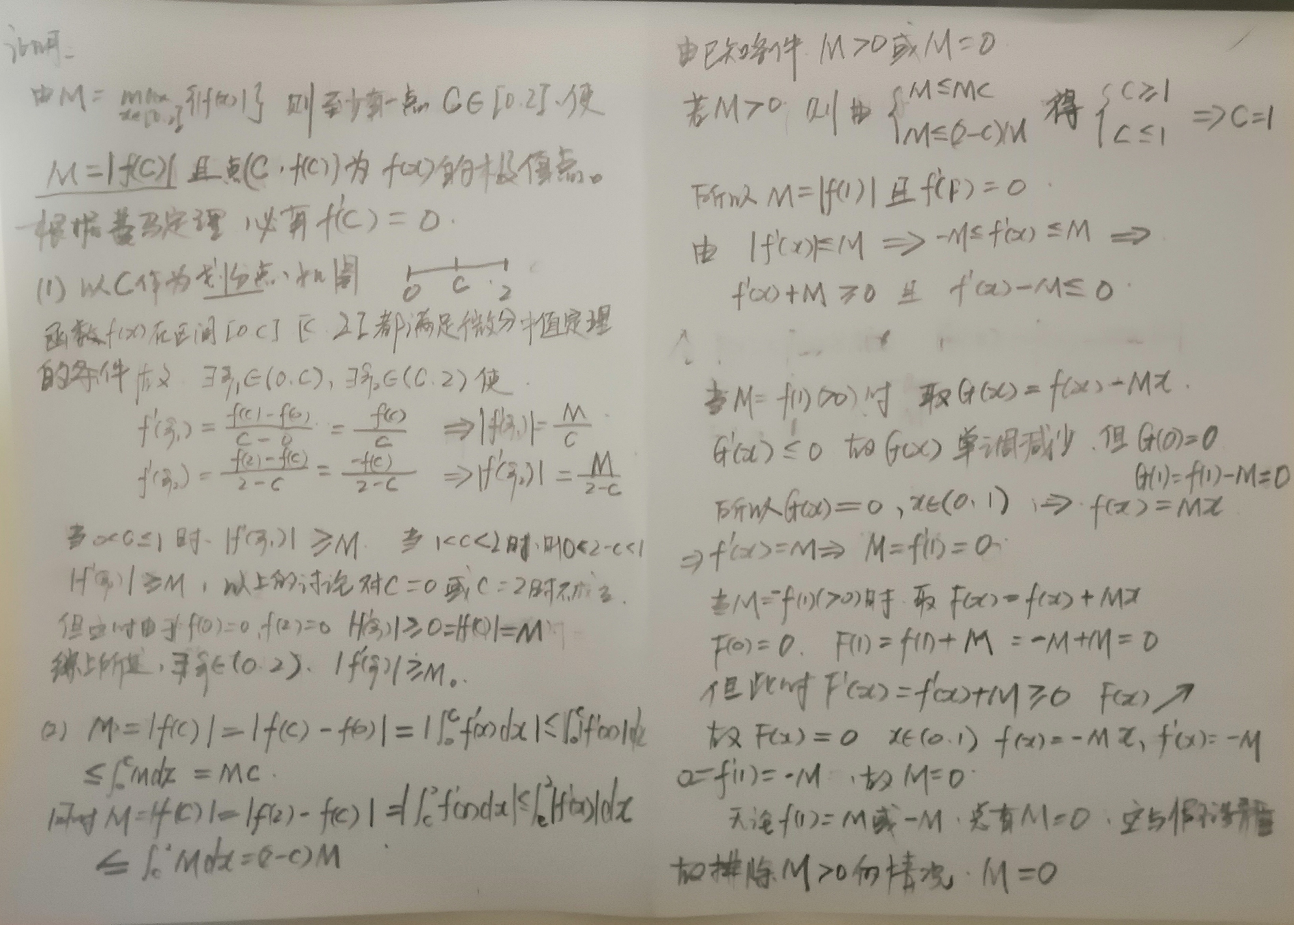 证明
由M=max x∈[0,2]{|f(x)|} 则至少有一点C∈[0.2].使
M=|f(C)| 且点(C,f(C))为f(x)的极值点。
根据费马定理,必有f'(C)=0.
(1) 以C作为划分点,如图 0 C 2
函数f(x)在区间[0 C] [C 2]都满足微分中值定理
的条件 故 ∃ξ₁∈(0.C),∃ξ₂∈(C.2)使
f'(ξ₁)=(f(c)-f(0))/(C-0)=f(c)/C ⇒|f'(ξ₁)|=M/C
f'(ξ₂)=(f(2)-f(c))/(2-C)=-f(c)/(2-C) ⇒|f'(ξ₂)|=M/(2-C)
当0<C≤1时.|f'(ξ₁)|≥M. 当1<C<2时,即0<2-C<1
|f'(ξ)|≥M,以上的讨论对C=0或C=2时不成立.
但此时由于f(0)=0,f(2)=0 |f'(ξ)|≥0=|f(C)|=M
综上所述,∃ξ∈(0.2)、|f'(ξ)|≥M。
(2) M=|f(C)|=|f(C)-f(0)|=|∫₀ᶜf'(x)dx|≤∫₀ᶜ|f'(x)|dx
≤∫₀ᶜMdx=MC.
同时M=|f(C)|=|f(2)-f(C)|=|∫c²f'(x)dx|≤∫c²|f'(x)|dx
≤∫c²Mdx=(2-C)M
由已知条件 M>0或M=0
若M>0 则由{M≤MC M≤(2-C)M 得{C≥1 C≤1 ⇒C=1
所以M=|f(1)|且f'(1)=0.
由 |f'(x)|≤M ⇒ -M≤f'(x)≤M ⇒
f'(x)+M≥0 且 f'(x)-M≤0.
当M=f(1)(>0)时 取G(x)=f(x)-Mx.
G'(x)≤0 故G(x)单调减少.但G(0)=0
G(1)=f(1)-M=0
所以G(x)=0,x∈(0.1) ⇒ f(x)=Mx
⇒f'(x)=M⇒ M=f'(1)=0.
当M=-f(1)(>0)时.取F(x)=f(x)+Mx
F(0)=0. F(1)=f(1)+M=-M+M=0
但此时F'(x)=f'(x)+M≥0 F(x)↗
故F(x)=0 x∈(0.1) f(x)=-Mx,f'(x)=-M
0=f'(1)=-M,故M=0.
无论f(1)=M或-M.总有M=0,
故排除M>0的情况.M=0